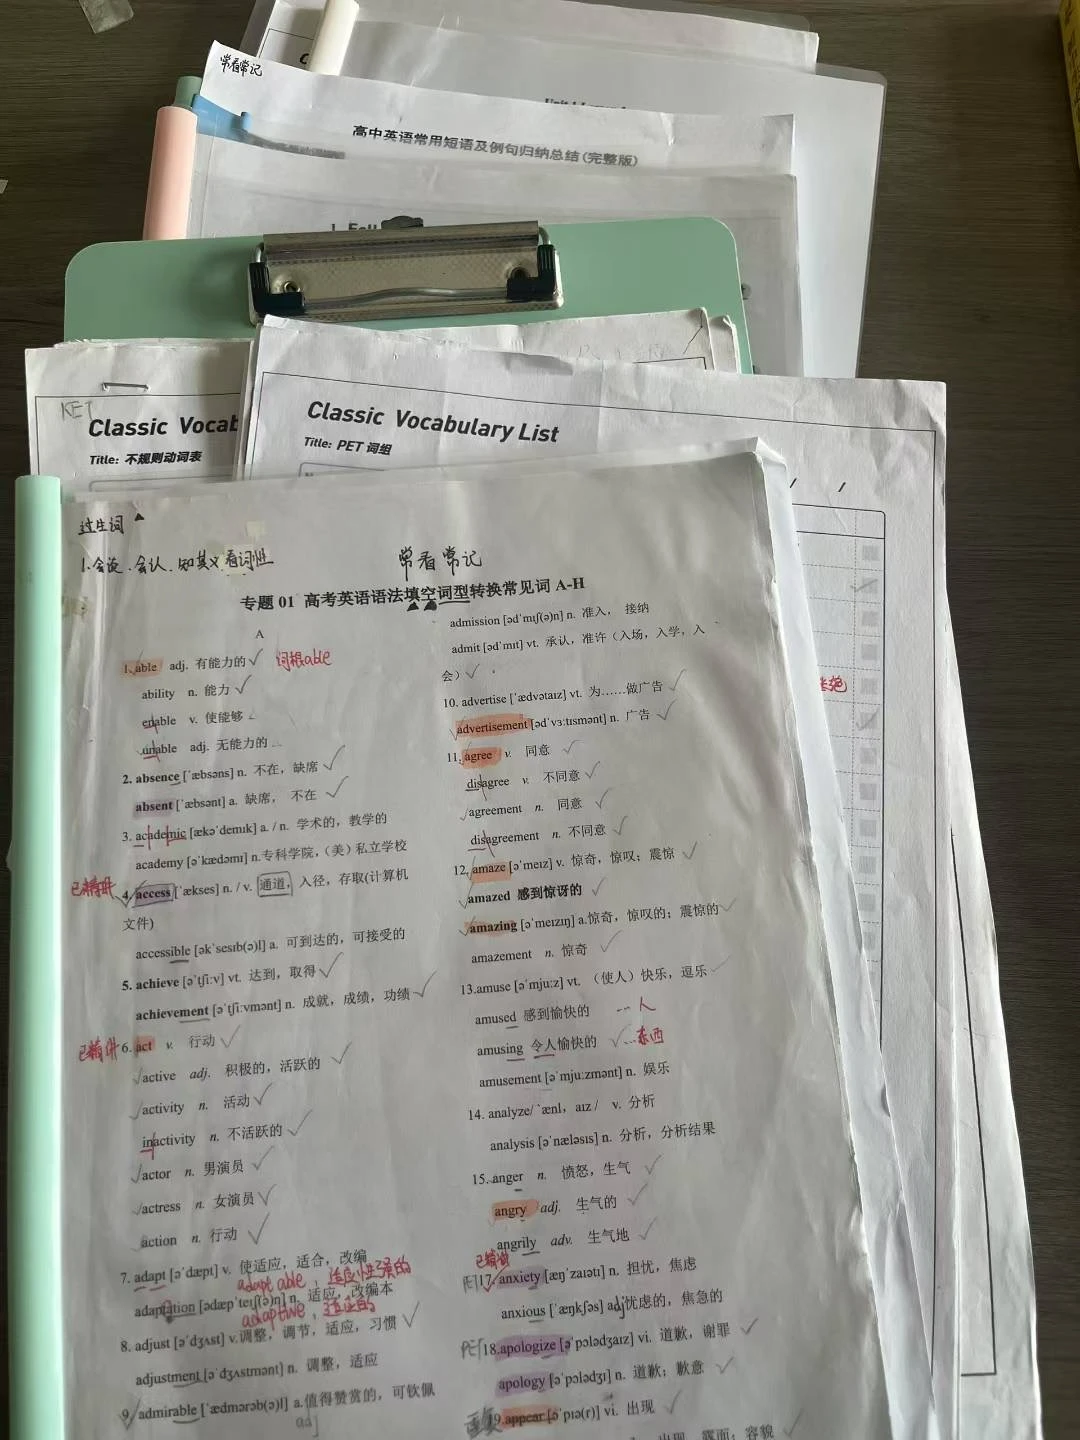 常看常记
高中英语常用短语及例句归纳总结(完整版)
KET
Classic Vocab
Title: 不规则动词表
Classic Vocabulary List
Title: PET 词组
过生词
1.会读.会认.知其义看词性
常看常记
专题 01 高考英语语法填空词型转换常见词 A-H
A
1. able adj. 有能力的 词根able
ability n. 能力
enable v. 使能够
unable adj. 无能力的
2. absence [ˈæbsəns] n. 不在，缺席
absent [ˈæbsənt] a. 缺席， 不在
3. academic [ækəˈdemɪk] a. / n. 学术的，教学的
academy [əˈkædəmɪ] n.专科学院，（美）私立学校
4. access [ˈækses] n. / v. 通道，入径，存取(计算机
文件)
accessible [əkˈsesɪb(ə)l] a. 可到达的，可接受的
5. achieve [əˈtʃiːv] vt. 达到，取得
achievement [əˈtʃiːvmənt] n. 成就，成绩，功绩
已精讲 6. act v. 行动
active adj. 积极的，活跃的
activity n. 活动
inactivity n. 不活跃的
actor n. 男演员
actress n. 女演员
action n. 行动
7. adapt [əˈdæpt] v. 使适应，适合，改编
adaptable，适应性强的
adaptation [ədæpˈteɪʃ(ə)n] n. 适应，改编本
adaptive，适应的
8. adjust [əˈdʒʌst] v.调整，调节，适应，习惯
adjustment [əˈdʒʌstmənt] n. 调整，适应
9. admirable [ˈædmərəb(ə)l] a.值得赞赏的，可钦佩
admission [ədˈmɪʃ(ə)n] n. 准入， 接纳
admit [ədˈmɪt] vt. 承认，准许（入场，入学，入
会）
10. advertise [ˈædvətaɪz] vt. 为……做广告
advertisement [ədˈvɜːtɪsmənt] n. 广告
11. agree v. 同意
disagree v. 不同意
agreement n. 同意
disagreement n. 不同意
12. amaze [əˈmeɪz] v. 惊奇，惊叹；震惊
amazed 感到惊讶的
amazing [əˈmeɪzɪŋ] a.惊奇，惊叹的；震惊的
amazement n. 惊奇
13.amuse [əˈmjuːz] vt. （使人）快乐，逗乐
amused 感到愉快的 …人
amusing 令人愉快的 …东西
amusement [əˈmjuːzmənt] n. 娱乐
14. analyze/ ˈænl，aɪz / v. 分析
analysis [əˈnæləsɪs] n. 分析，分析结果
15. anger n. 愤怒，生气
angry adj. 生气的
angrily adv. 生气地
已精讲
17. anxiety [æŋˈzaɪətɪ] n. 担忧，焦虑
anxious [ˈæŋkʃəs] adj忧虑的，焦急的
PET 18.apologize [əˈpɒlədʒaɪz] vi. 道歉，谢罪
apology [əˈpɒlədʒɪ] n. 道歉；歉意
19.appear [əˈpɪə(r)] vi. 出现
出现，露面；容貌